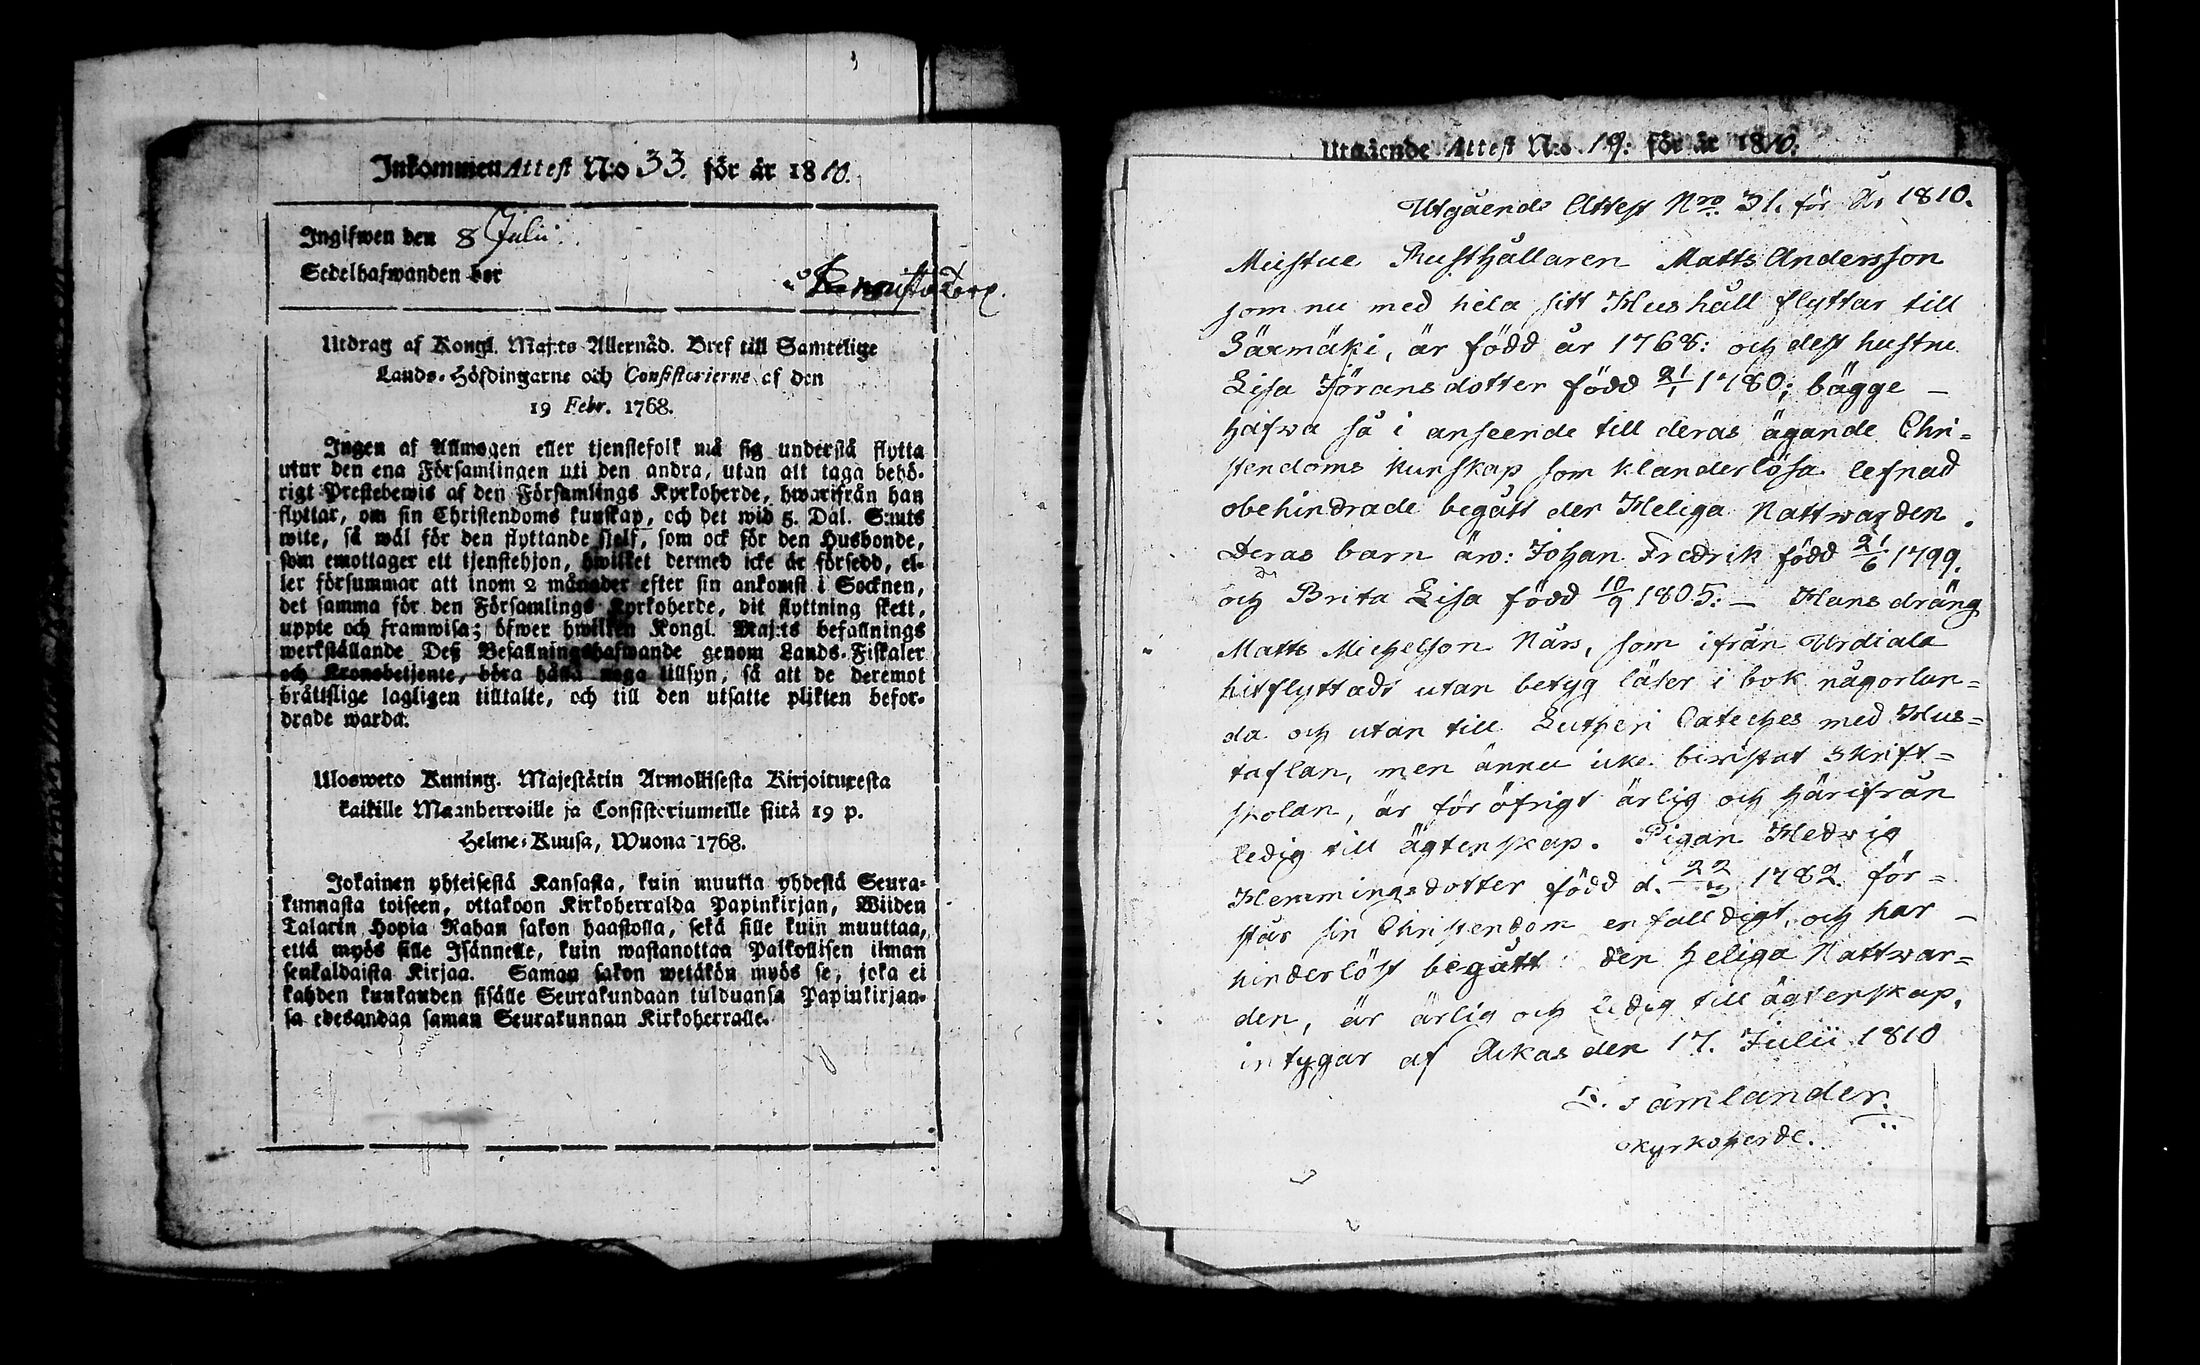 Inkommen Attest N:o 33. för år 1810.
Ingifwen den 8 Julii.
Sedelhafwanden bor
Utdrag af Kongl. Maj:ts Allernåd. Bref till Samtelige
Lands-Höfdingarne och Consistorierne af den
19 Febr. 1768.
Ingen af Allmogen eller tjenstefolk må sig understå flytta
utur den ena Församlingen uti den andra, utan att taga behö-
rigt Prestebewis af den Församlings Kyrkoherde, hwarifrån han
flyttar, om sin Christendoms kunskap, och det wid 5. Dal. S:mts
wite, så wäl för den flyttande sjelf, som ock för den Husbonde,
som emottager ett tjenstehjon, hwilket dermed icke är försedd, el-
ler försummar att inom 2 månader efter sin ankomst i Socknen,
det samma för den Församlings Kyrkoherde, dit flyttning skett,
uppte och framwisa; öfwer hwilken Kongl. Maj:ts befallnings
werkställande Deß Befallningshafwande genom Lands-Fiskaler
och Kronobetjente, böra hålla noga tillsyn, så att de deremot
brättslige lagligen tilltalte, och till den utsatte plikten befor-
drade warda.
Ulosweto Kuning. Majestätin Armollisesta Kirjoituxesta
kaikille Maanherroille ja Consistoriumeille siitä 19 p.
Helme-Kuusa, Wuona 1768.
Jokainen yhteisestä Kansasta, kuin muutta yhdestä Seura-
kunnasta toiseen, ottakoon Kirkoherralda Papinkirjan, Wiiden
Talarin Hopia Rahan sakon haastolla, sekä sille kuin muuttaa,
että myös sille Isännelle, kuin wastanottaa Palkollisen ilman
senkaldaista Kirjaa. Saman sakon wetäkön myös se, joka ei
kahden kuukauden sisälle Seurakundaan tulduansa Papinkirjan-
sa edesandaa saman Seurakunnan Kirkoherralle.
Utgående Attest N:o 19: för år 1810:
Utgående Attest Nro 31. för År 1810.
Rusthållaren Matts Andersson
som nu med hela sitt Hushåll flyttar till
Särmäki, är född år 1768: och dess hustru
Lisa Jöransdotter född 21/1 1780; bägge –
hafwa så i anseende till deras ägande Chri=
stendoms kunskap som klanderlösa lefnad
obehindrade begått den Heliga Nattwarden.
Deras barn äro: Johan Fredrik född 21/6 1799.
och Brita Lisa född 10/9 1805: – Hans dräng
Matts Michelsson Närs, som ifrån Urdiala
hitflyttadt utan betyg läser i bok någorlun=
da och utan till Lutheri Cateches med Hus=
taflan, men ännu icke biwistat Skrift=
skolan, är för öfrigt ärlig och härifrån
ledig till ägtenskap. Pigan Hedwig
Hemmingsdotter född d. 22/3 1782 för=
står sin Christendom enfalldigt, och har –
hinderlöst begått den heliga Nattwar=
den, är ärlig och ledig till ägtenskap,
intygar af Ackas den 17. Julii 1810
Sämlander.
Kyrkoherde.